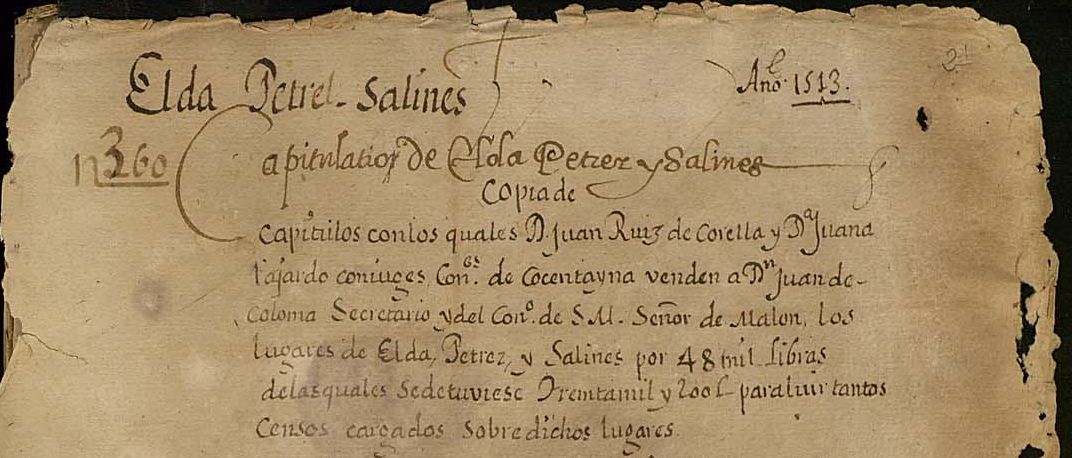 Elda Petrel. Salines
Año 1513.
21
nº 260
Capitulatioñ de Elda Petrer y Salines
Copia de
Capitulos con los quales D. Juan Ruiz de Corella y Dª Juana
fajardo coniuges, Con.es de Cocentayna venden a Dn Juan de
Coloma Secretario y del Con.º de S M. Señor de Malon, los
lugares de Elda, Petrer, y Salines por 48 mil libras
de las quales se detuviese Trentamil y 200 L para luir tantos
Censos cargados sobre dichos lugares.